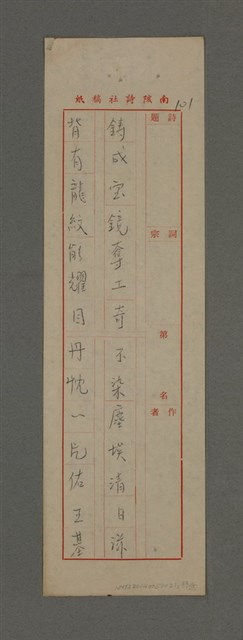 南陔詩社稿紙
101
詩題
詞宗
第 名
作者
鑄成宝鏡奪工奇不染塵埃清日漾
背有龍紋能耀目丹忱一片佑王基